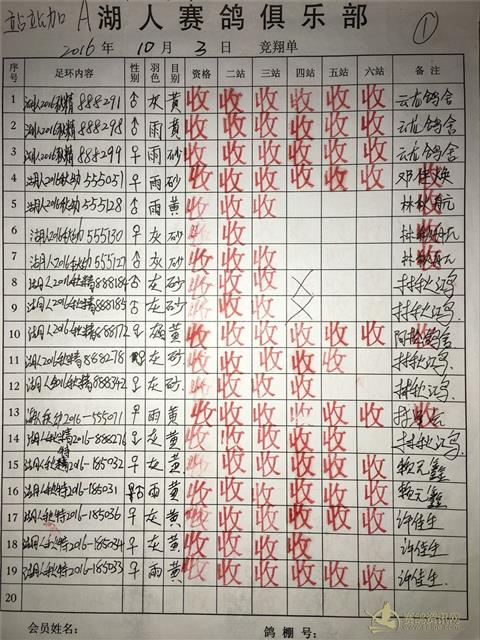 站站加 A 湖人赛鸽俱乐部 ①
2016 年 10 月 3 日 竞翔单
序号 足环内容 性别 羽色 目别 资格 二站 三站 四站 五站 六站 备注
1 湖人2016秋精888291 ♂ 灰 黄 收 收 收 收 收 收 云龙鸽舍
2 湖人2016秋精888298 ♂ 雨 黄 收 收 收 收 收 收 云龙鸽舍
3 湖人2016秋精888299 ♀ 雨 砂 收 收 收 收 收 收 云龙鸽舍
4 湖人2016秋幼555051 ♀ 雨 砂 收 收 收 收 收 收 邓佳焕
5 湖人2016秋幼555128 ♂ 雨 黄 收 收 收
6 湖人2016秋幼555130 ♀ 灰 砂 收 收
7 湖人2016秋幼555127 ♂ 灰 砂 收 收 收
8 湖人2016秋精888184 ♂ 灰 砂 收 收 收
9 湖人2016秋精888185 ♀ 灰 砂 收 收 收
10 湖人2016秋精888172 ♀ 黄 收 收 收 收 收 收
11 湖人2016秋精8888278 灰 砂 收 收 收 收 收
12 湖人2016秋精888342 ♀ 灰 砂 收 收 收
13 2016-555071 ♀ 雨 黄 收 收 收 收 收 收
14 湖人秋精2016-888276 ♀ 灰 黄 收 收 收 收
15 湖人秋特2016-185032 ♀ 灰 黄 收 收 收 收 收 收 赖天鑫
16 湖人秋特2016-185031 雨 黄 收 收 收 收 收 收 赖天鑫
17 湖人秋特2016-185036 ♀ 灰 黄 收 收 收 收 收 收 许佳生
18 湖人秋特2016-185034 ♀ 灰 黄 收 收 收 收 许佳生
19 湖人秋特2016-185033 ♀ 雨 黄 收 收 收 收 收 收 许佳生
20
会员姓名: 鸽棚号: